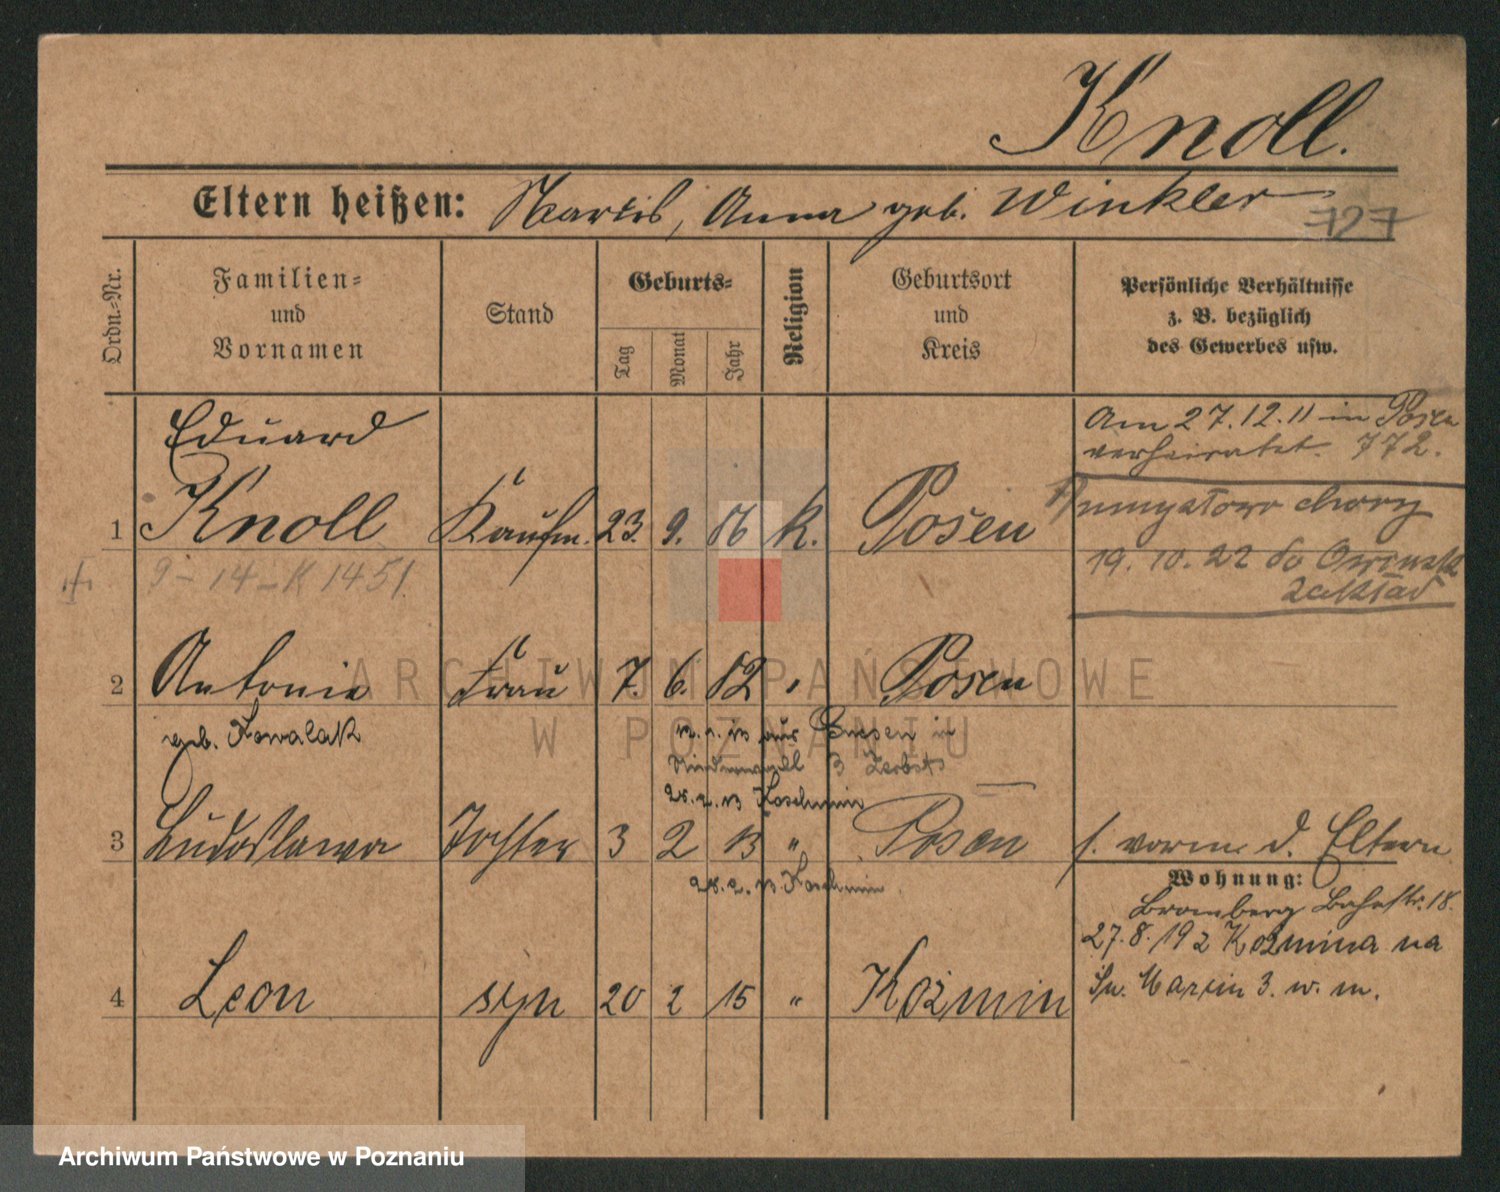 Knoll.
Eltern heißen: Anna geb. Winkler
727
Ordn.-Nr.
Familien-
und
Vornamen
Stand
Geburts-
Tag
Monat
Jahr
Religion
Geburtsort
und
Kreis
Persönliche Verhältnisse
z. B. bezüglich
des Gewerbes usw.
Am 27.12.11 in Posen
verheiratet. 772.
Eduard
1 Knoll Kaufm. 23. 9. 86 k. Posen
chory
19. 10. 22 do
zakład
9-14-K 1451.
2 Antonie Frau 7. 6. 82 Posen
geb. Kowalak
aus Gnesen in
3 Zerbst
28.2.13 Koschmin
3 Ludoslawa Tochter 3 2 13 " Posen
f. vorm. d. Eltern
28.2.13 Koschmin
Wohnung:
Bromberg Bahnstr. 18.
27.8.19 z Koźmina na
Św. Marcin 3. w. m.
4 Leon syn 20 2 15 " Koźmin
ARCHIWUM PAŃSTWOWE
W POZNANIU
Archiwum Państwowe w Poznaniu